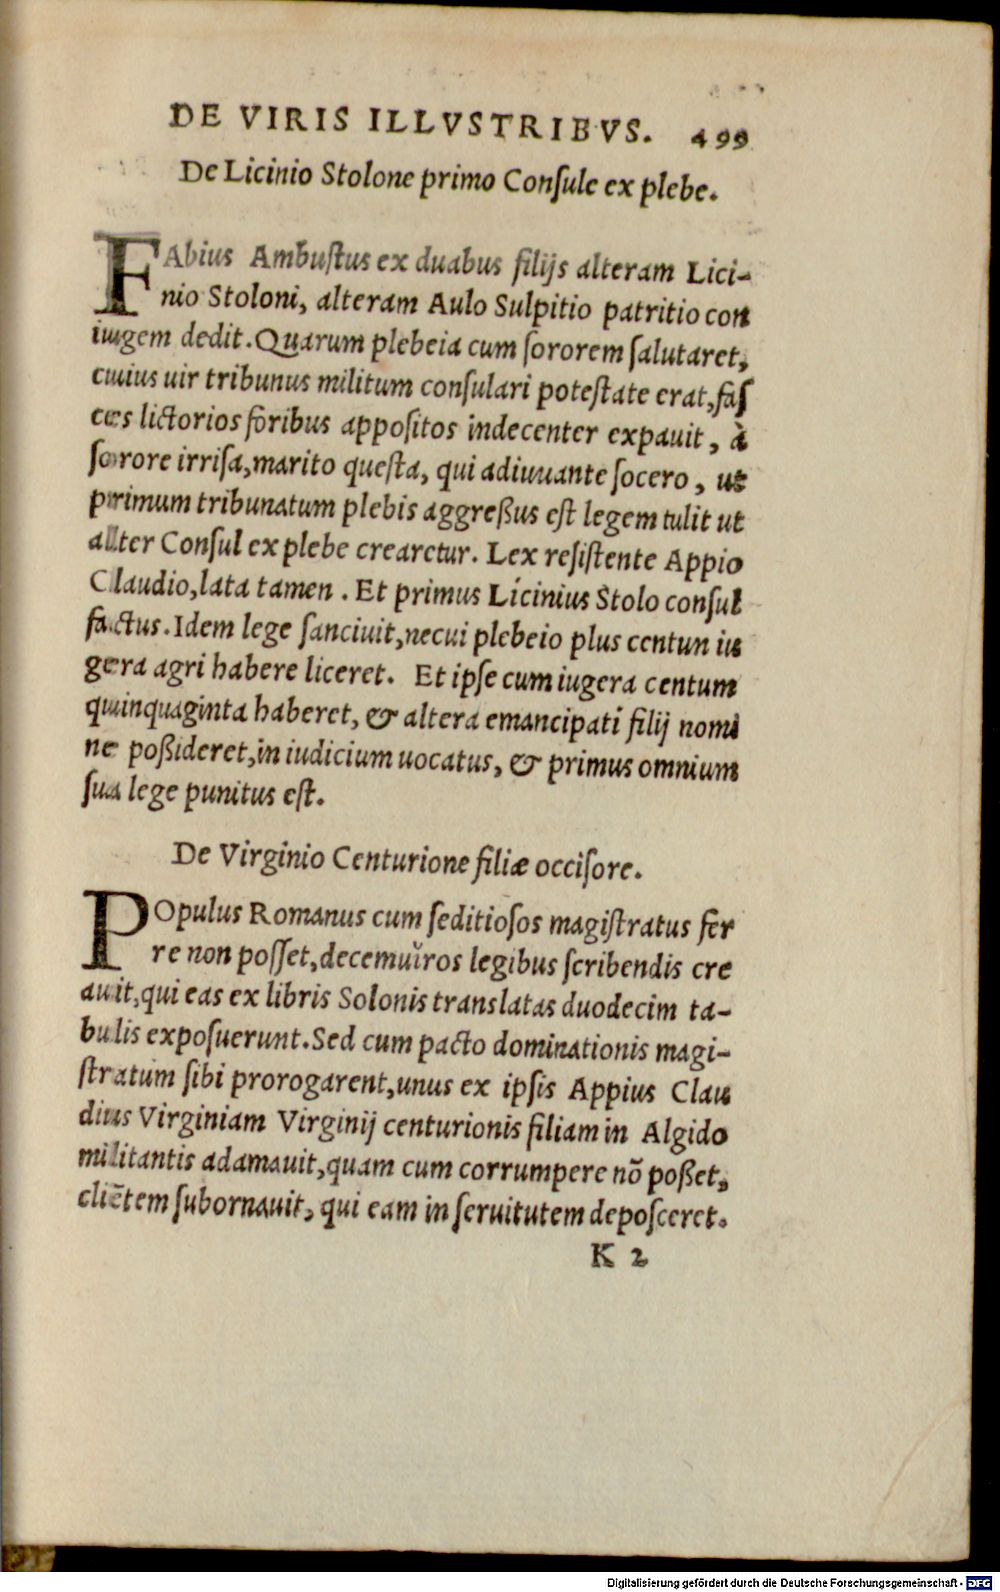 DE VIRIS ILLVSTRIBVS. 499
De Licinio Stolone primo Conſule ex plebe.
FAbius Ambuſtus ex duabus filijs alteram Lici-
nio Stoloni, alteram Aulo Sulpitio patritio con
iugem dedit. Quarum plebeia cum ſororem ſalutaret,
cuius uir tribunus militum conſulari poteſtate erat, faſ
ces lictorios foribus appoſitos indecenter expauit, à
ſorore irriſa, marito queſta, qui adiuuante ſocero, ut
primum tribunatum plebis aggreßus eſt legem tulit ut
alter Conſul ex plebe crearetur. Lex reſiſtente Appio
Claudio, lata tamen. Et primus Licinius Stolo conſul
factus. Idem lege ſanciuit, necui plebeio plus centun iu
gera agri habere liceret. Et ipſe cum iugera centum
quinquaginta haberet, & altera emancipati filij nomi
ne poßideret, in iudicium uocatus, & primus omnium
ſua lege punitus eſt.
De Virginio Centurione filiæ occiſore.
POpulus Romanus cum ſeditioſos magiſtratus fer
re non poſſet, decemuiros legibus ſcribendis cre
auit, qui eas ex libris Solonis translatas duodecim ta-
bulis expoſuerunt. Sed cum pacto dominationis magi-
ſtratum ſibi prorogarent, unus ex ipſis Appius Clau
dius Virginiam Virginij centurionis filiam in Algido
militantis adamauit, quam cum corrumpere nõ poßet,
cliẽtem ſubornauit, qui eam in ſeruitutem depoſceret.
K 2
Digitalisierung gefördert durch die Deutsche Forschungsgemeinschaft - DFG